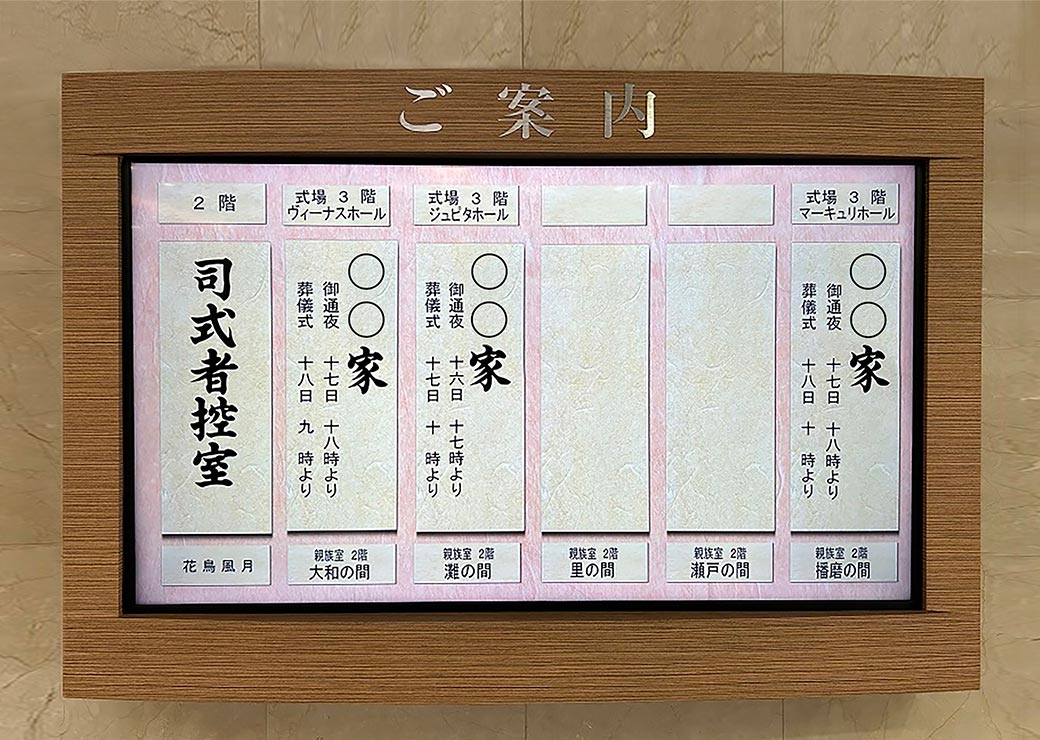 ご案内
2階
司式者控室
花鳥風月
式場 3 階
ヴィーナスホール
○○家
御通夜 十七日 十八時より
葬儀式 十八日 九 時より
親族室 2階
大和の間
式場 3 階
ジュピタホール
○○家
御通夜 十六日 十七時より
葬儀式 十七日 十 時より
親族室 2階
灘の間
親族室 2階
里の間
親族室 2階
瀬戸の間
式場 3 階
マーキュリホール
○○家
御通夜 十七日 十八時より
葬儀式 十八日 十 時より
親族室 2階
播磨の間